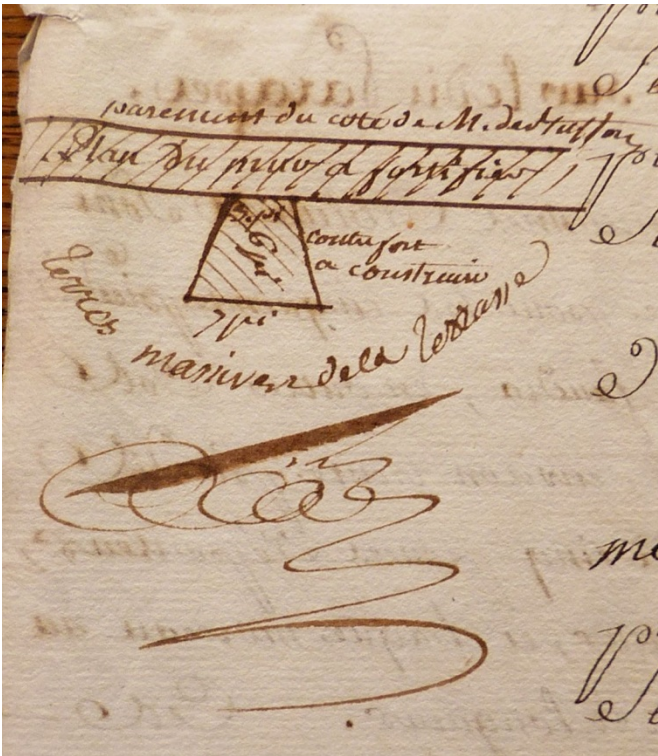 parement du coté de M. de
Plan du mur a fortifier
3. pi
6 pi
contrefort
a construire
7 pi
terres massives de la terrasse